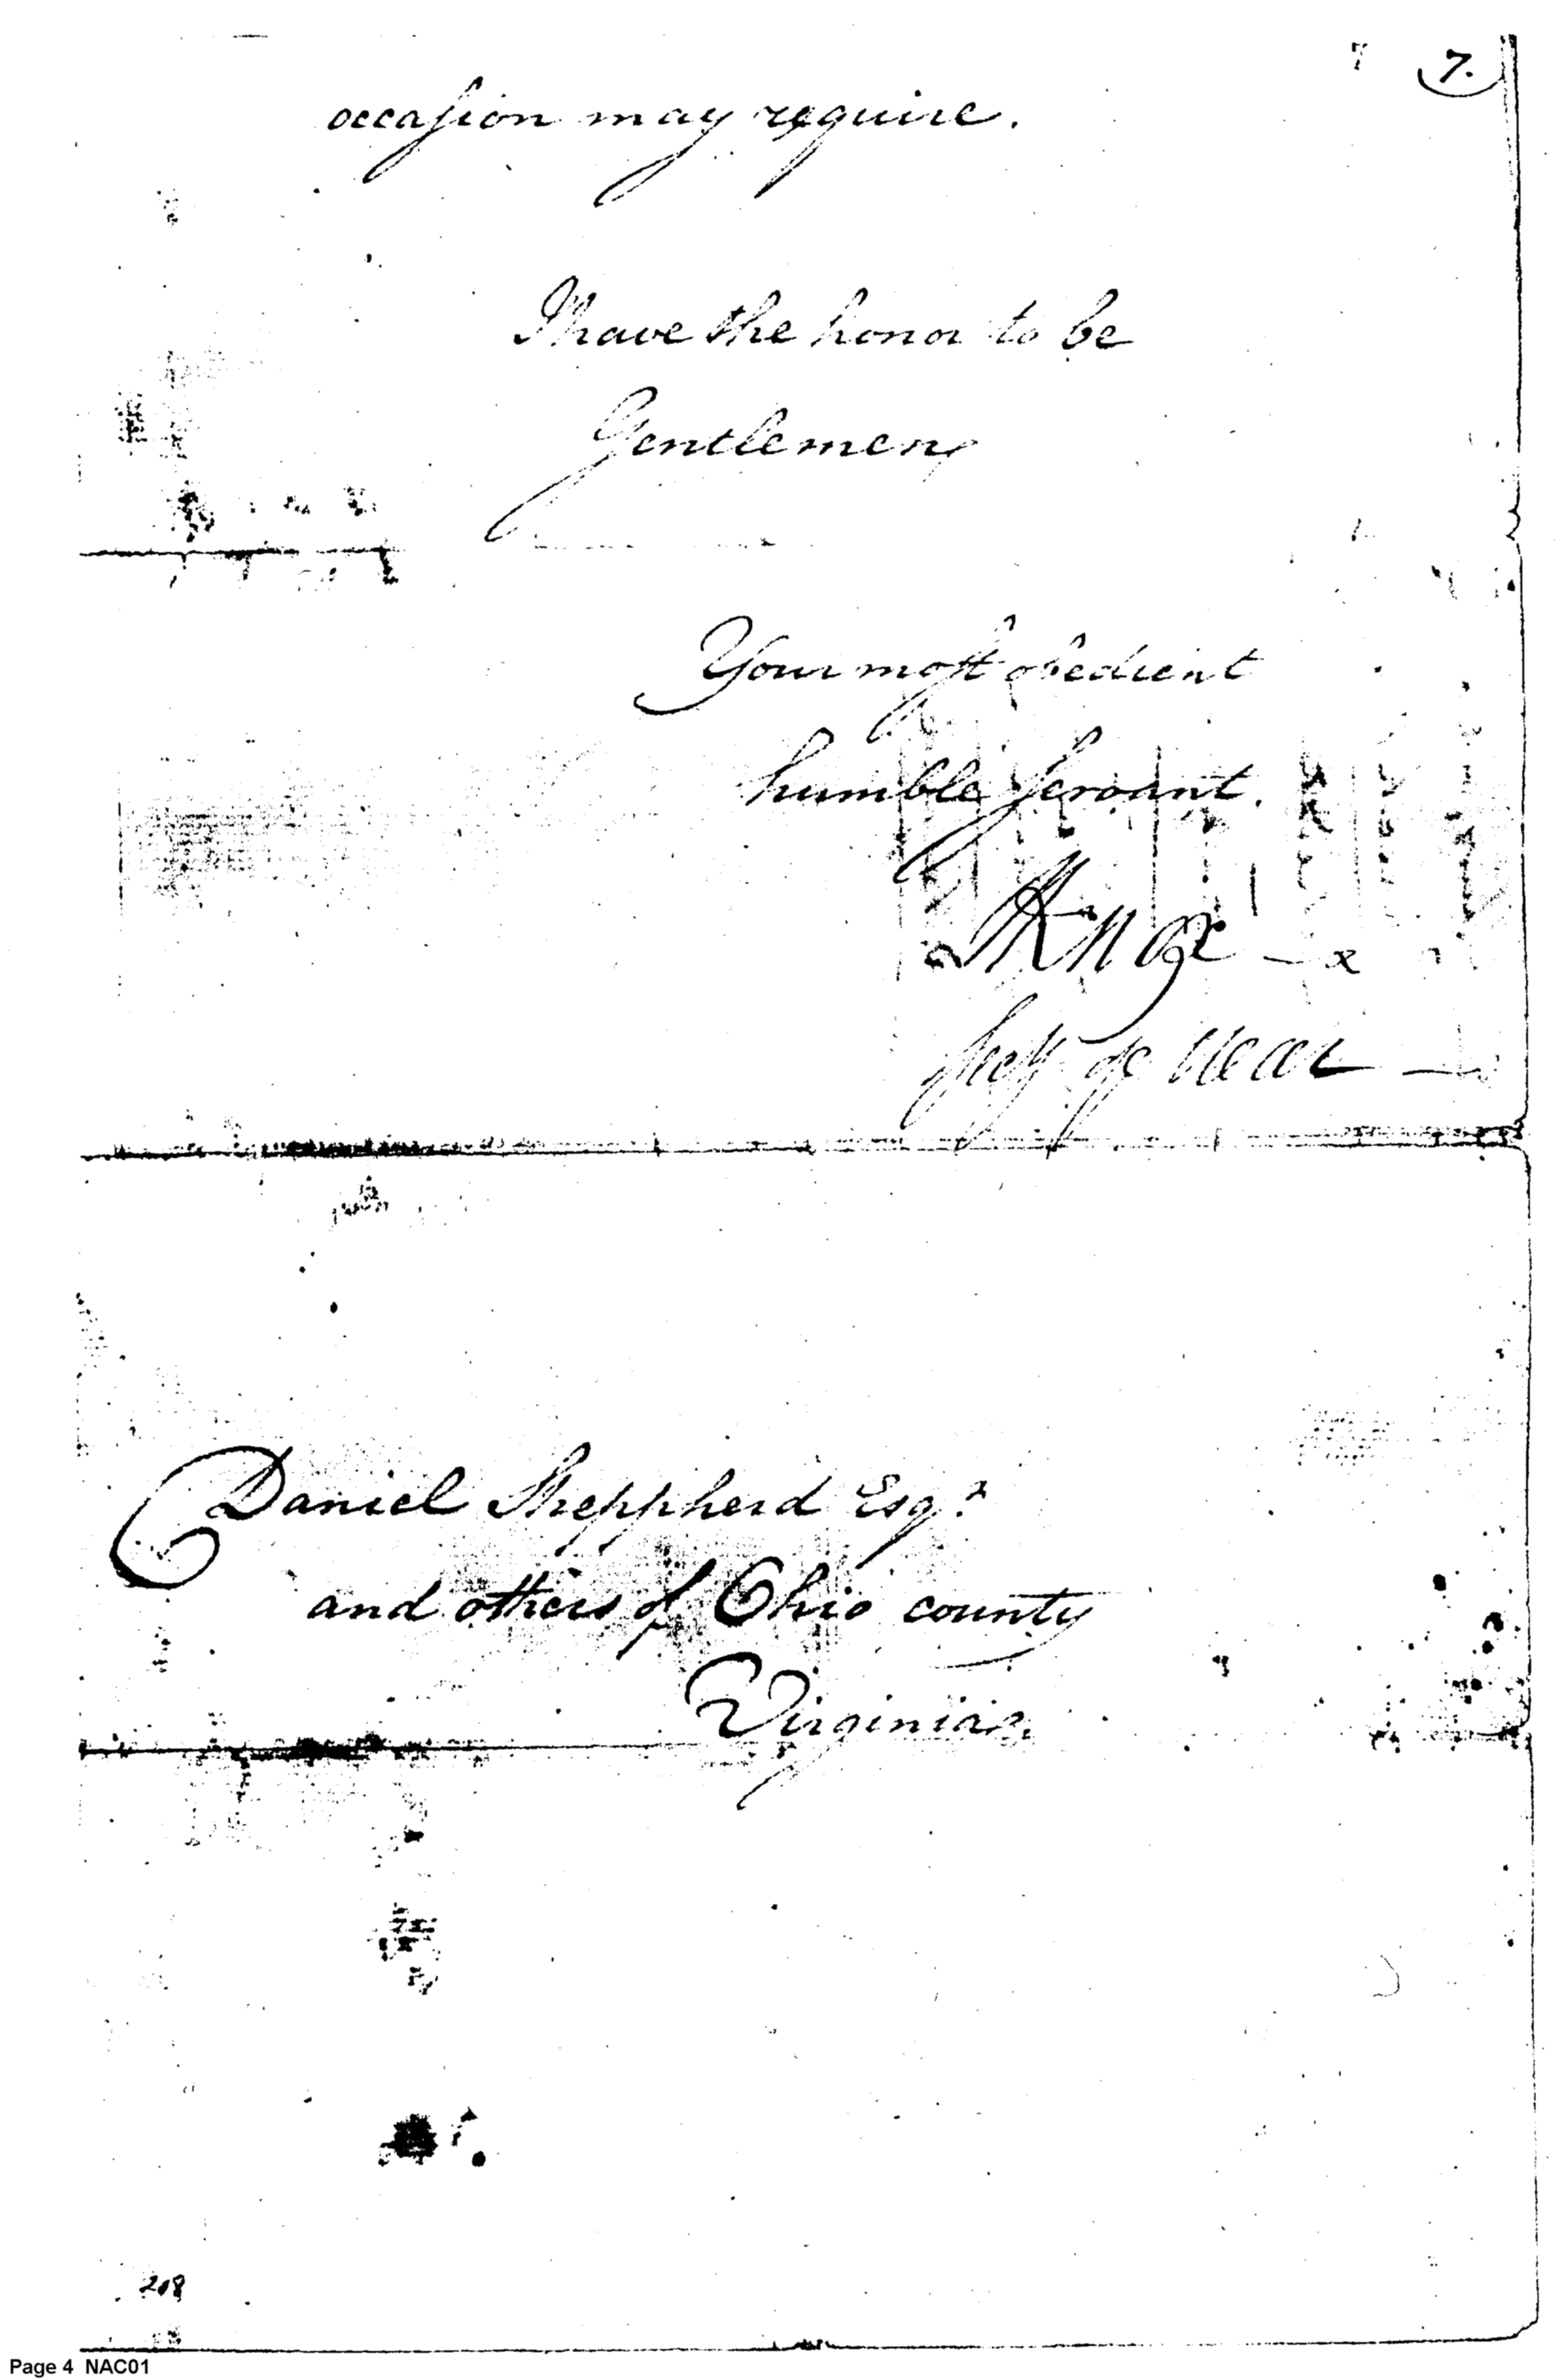 7.
occaſion may require.
I have the honor to be
Gentlemen,
Your moſt obedient
humble ſervant.
HKnox
Secy of War
Daniel Shepherd Esqr.
and others of Ohio county
Virginia
208
Page 4 NAC01